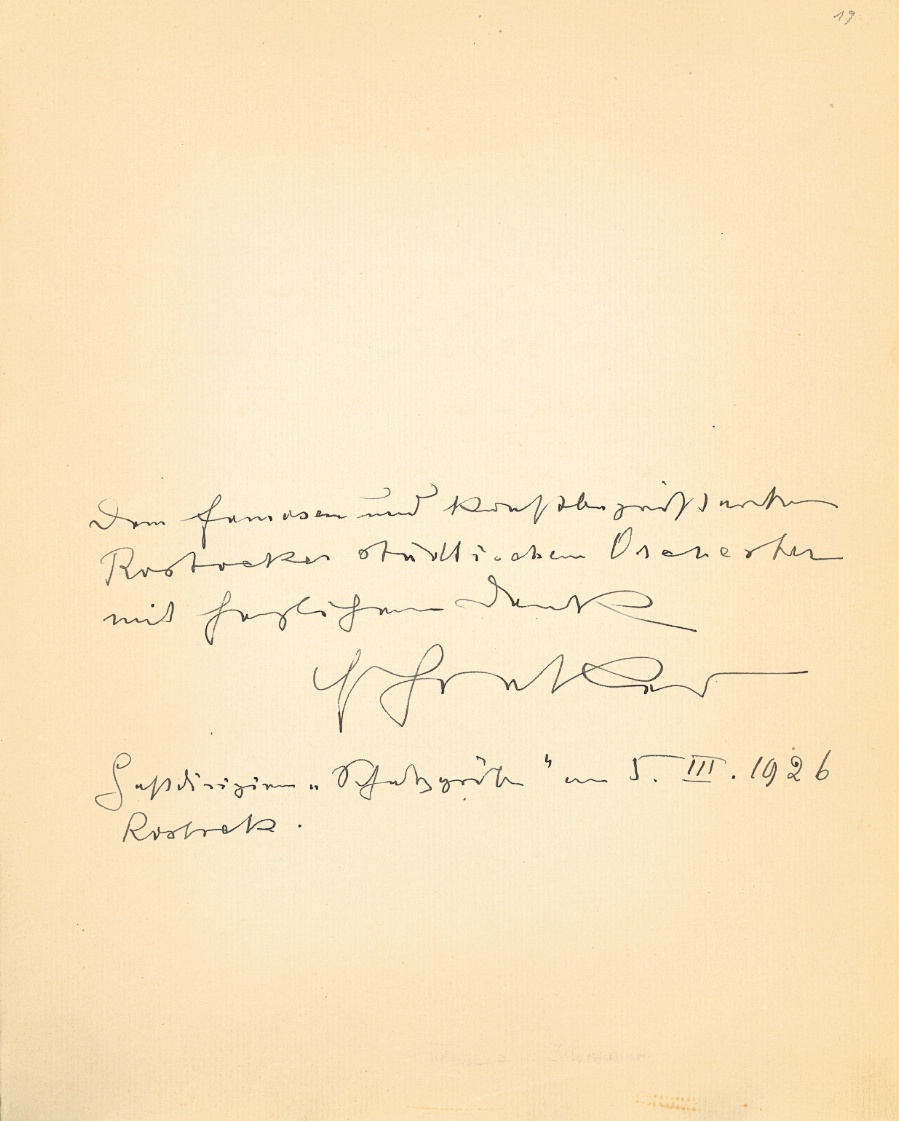 19
Dem famosen und kunstbegeisterten
Rostocker städtischen Orchester
mit herzlichem Dank
Schreker
Gastdirigieren „Schatzgräber" am 5. III. 1926
Rostock.